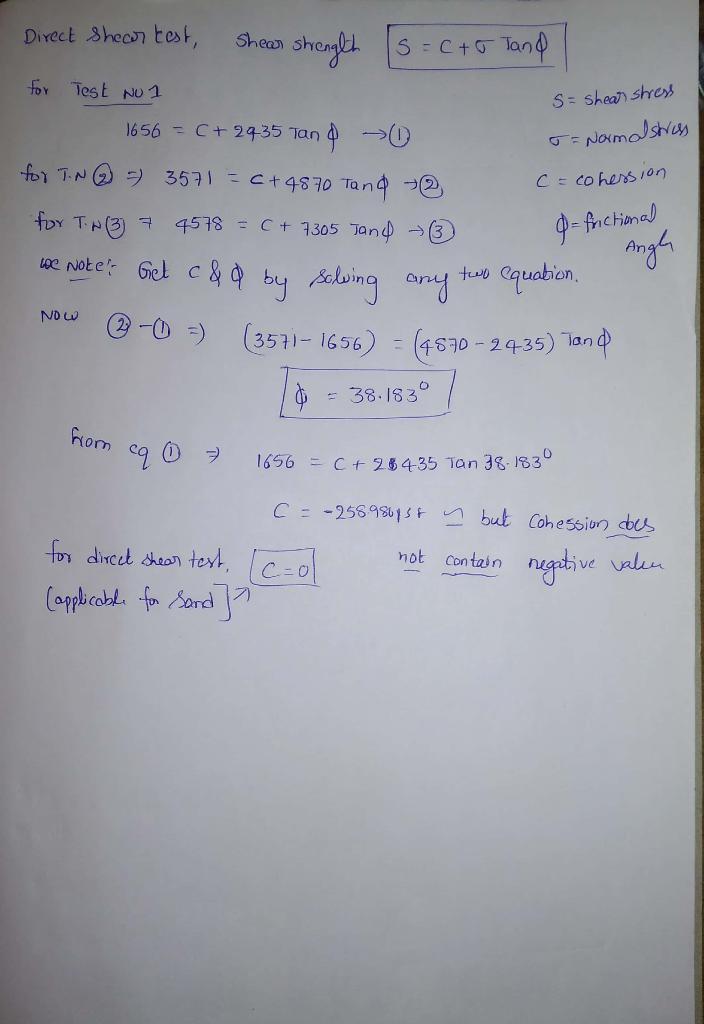 Direct Shear test, Shear strength S = C + σ Tanφ
for Test No 1
S = shear stress
1656 = C + 2435 Tan φ → ①
σ = Normal stress
for T.N ② ⇒ 3571 = C + 4870 Tanφ → ②
C = cohession
for T.N (3) ⇒ 4578 = C + 7305 Tanφ → ③
φ = frictional Angle
we Note:- Get C & φ by solving any two equation.
Now ② - ① ⇒ (3571 - 1656) = (4870 - 2435) Tanφ
φ = 38.183°
from eq ① ⇒ 1656 = C + 2435 Tan 38.183°
C = but Cohession does
for direct shear test, C = 0 not contain negative value
(applicable for Sand]